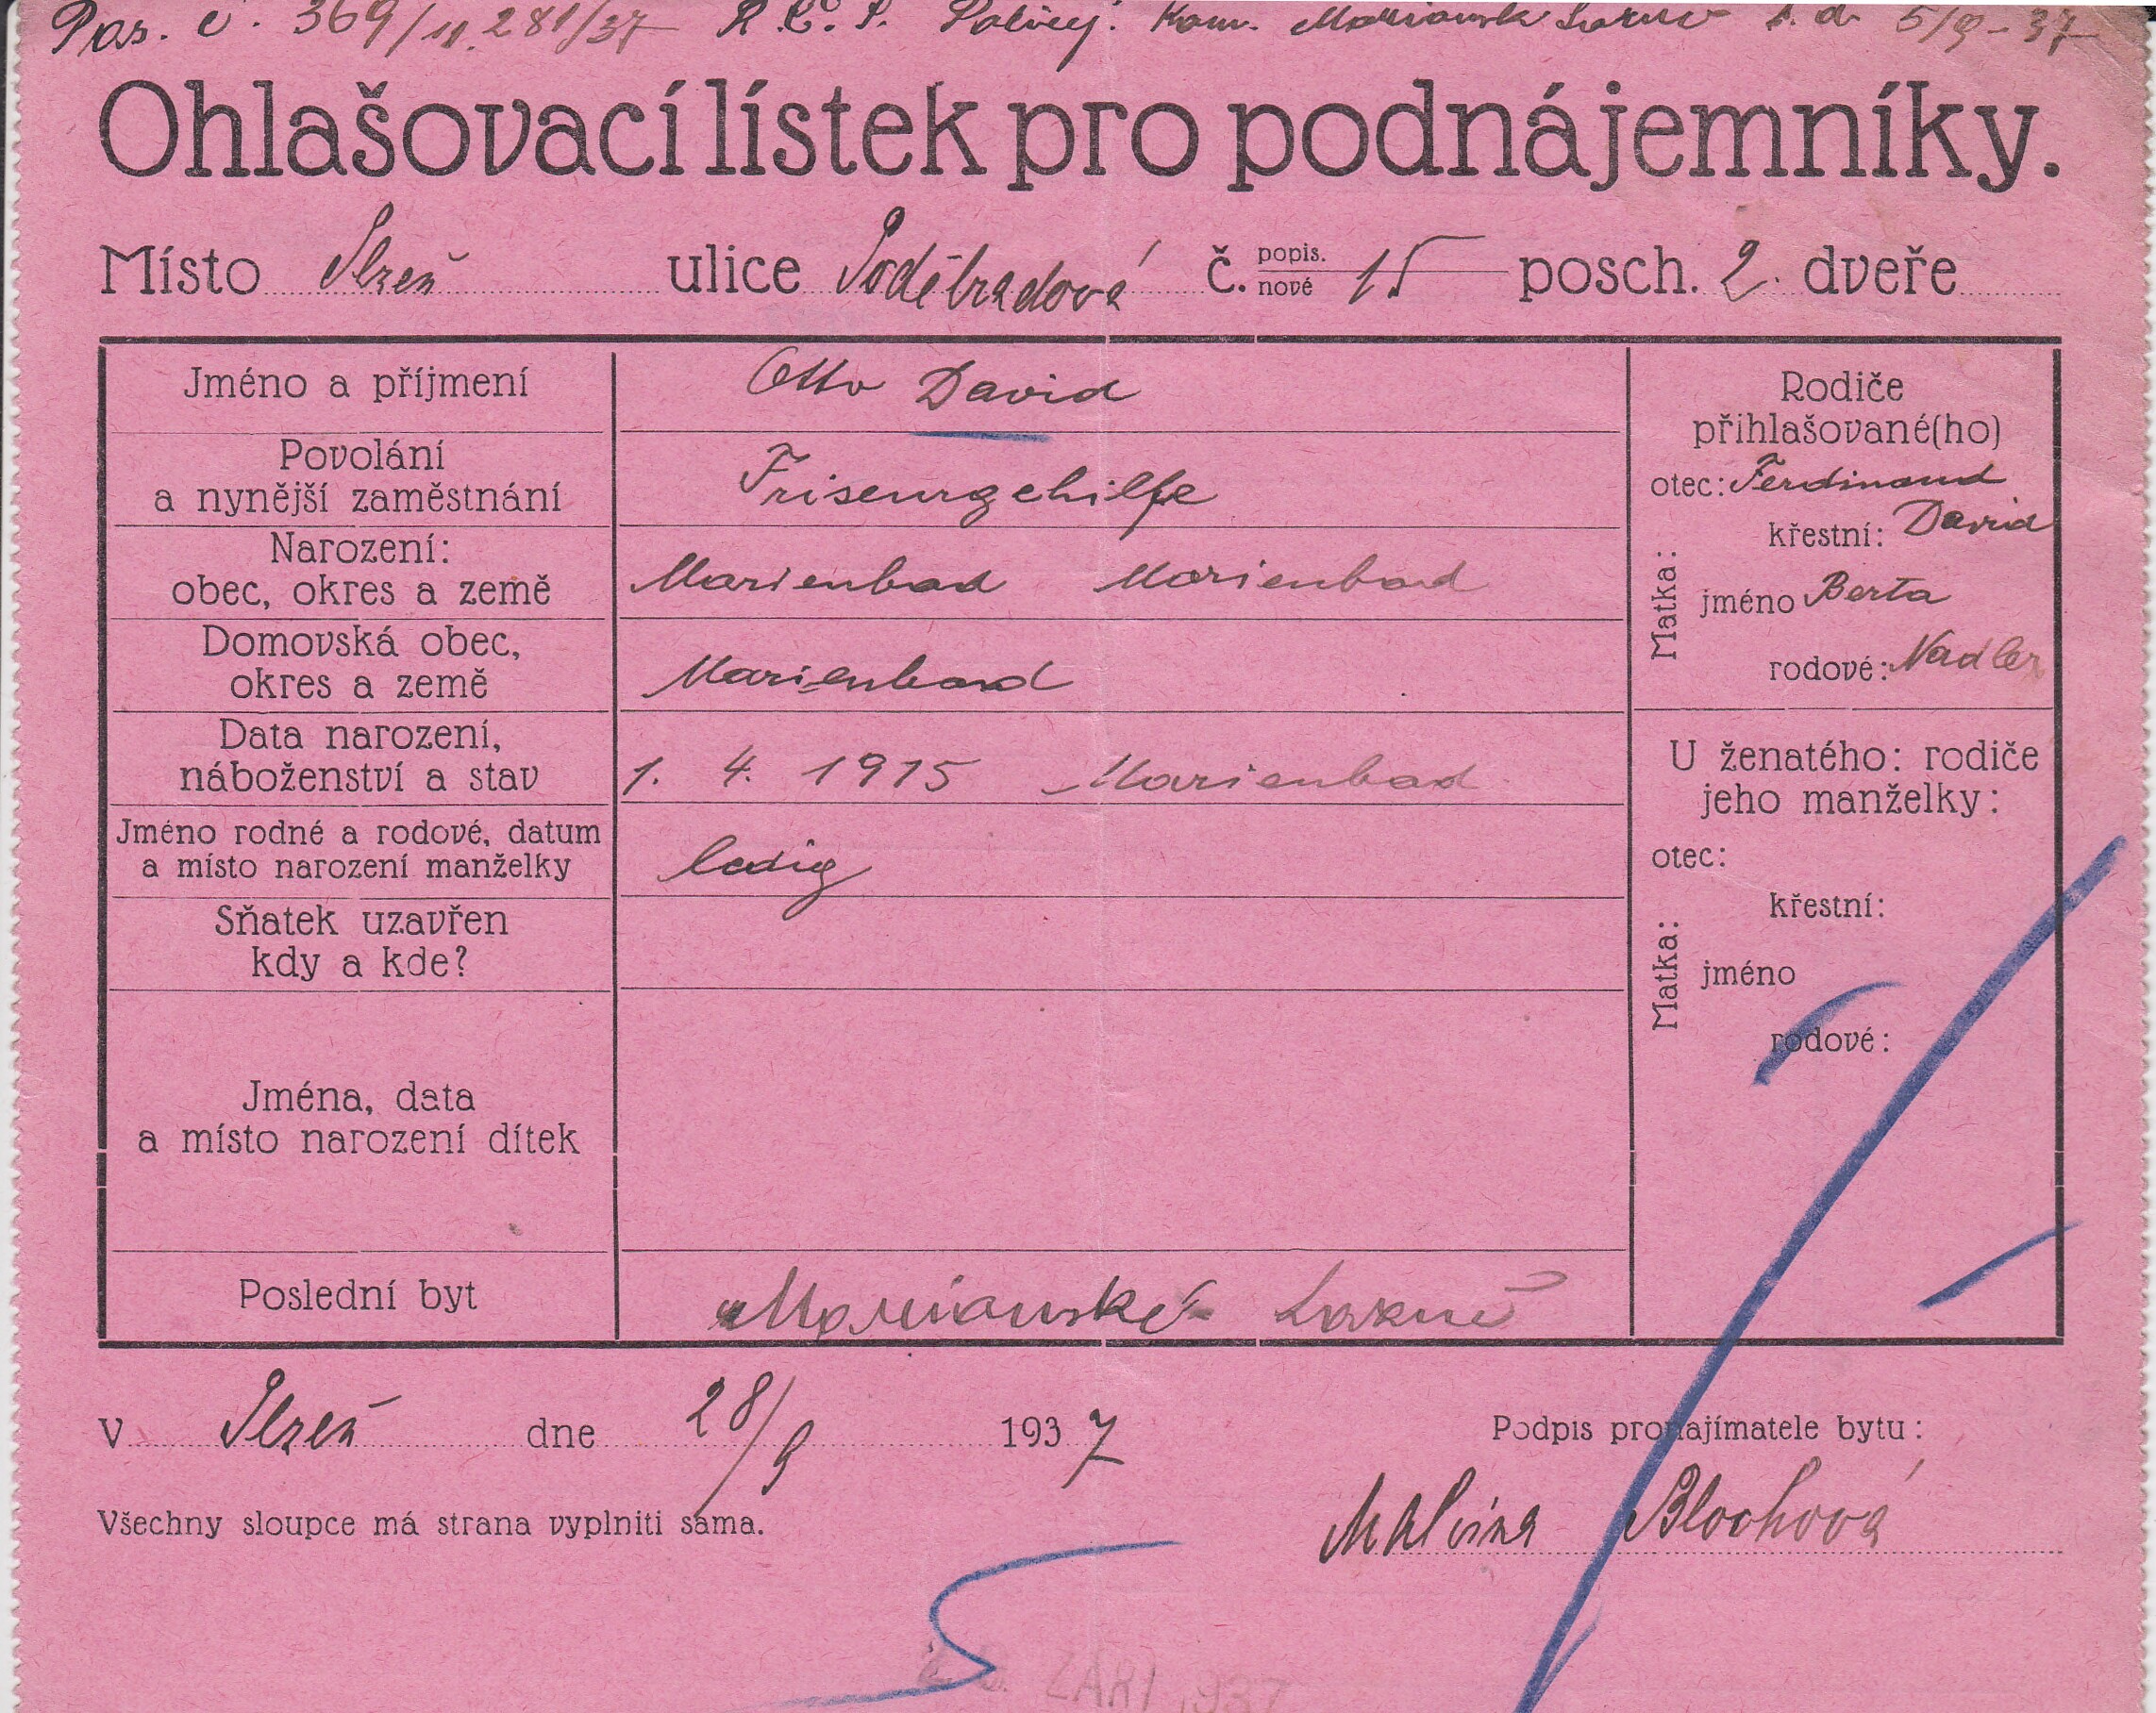 Pas. č. 369/11.281/37 R.Č.S. Policej. Kom. Mariánsk Lázně z. d. 5/9-37
Ohlašovací lístek pro podnájemníky.
Místo Plzeň ulice Poděbradová č. popis. nové 15 posch. 2. dveře
Jméno a příjmení Otto David
Povolání
a nynější zaměstnání Friseurgehilfe
Narození:
obec, okres a země Marienbad Marienbad
Domovská obec,
okres a země Marienbad
Data narození,
náboženství a stav 1. 4. 1915 Marienbad
Jméno rodné a rodové, datum
a místo narození manželky ledig
Sňatek uzavřen
kdy a kde?
Jména, data
a místo narození dítek
Poslední byt Marianské Lázně
Rodiče
přihlašované(ho)
otec: Ferdinand
David
Matka:
křestní:
jméno Berta
rodové: Nadler
U ženatého: rodiče
jeho manželky:
otec:
Matka:
křestní:
jméno
rodové:
V Plzeň dne 28/9 1937
Podpis pronajímatele bytu:
Všechny sloupce má strana vyplniti sama.
Malvina Blochová
ZÁŘÍ 1937